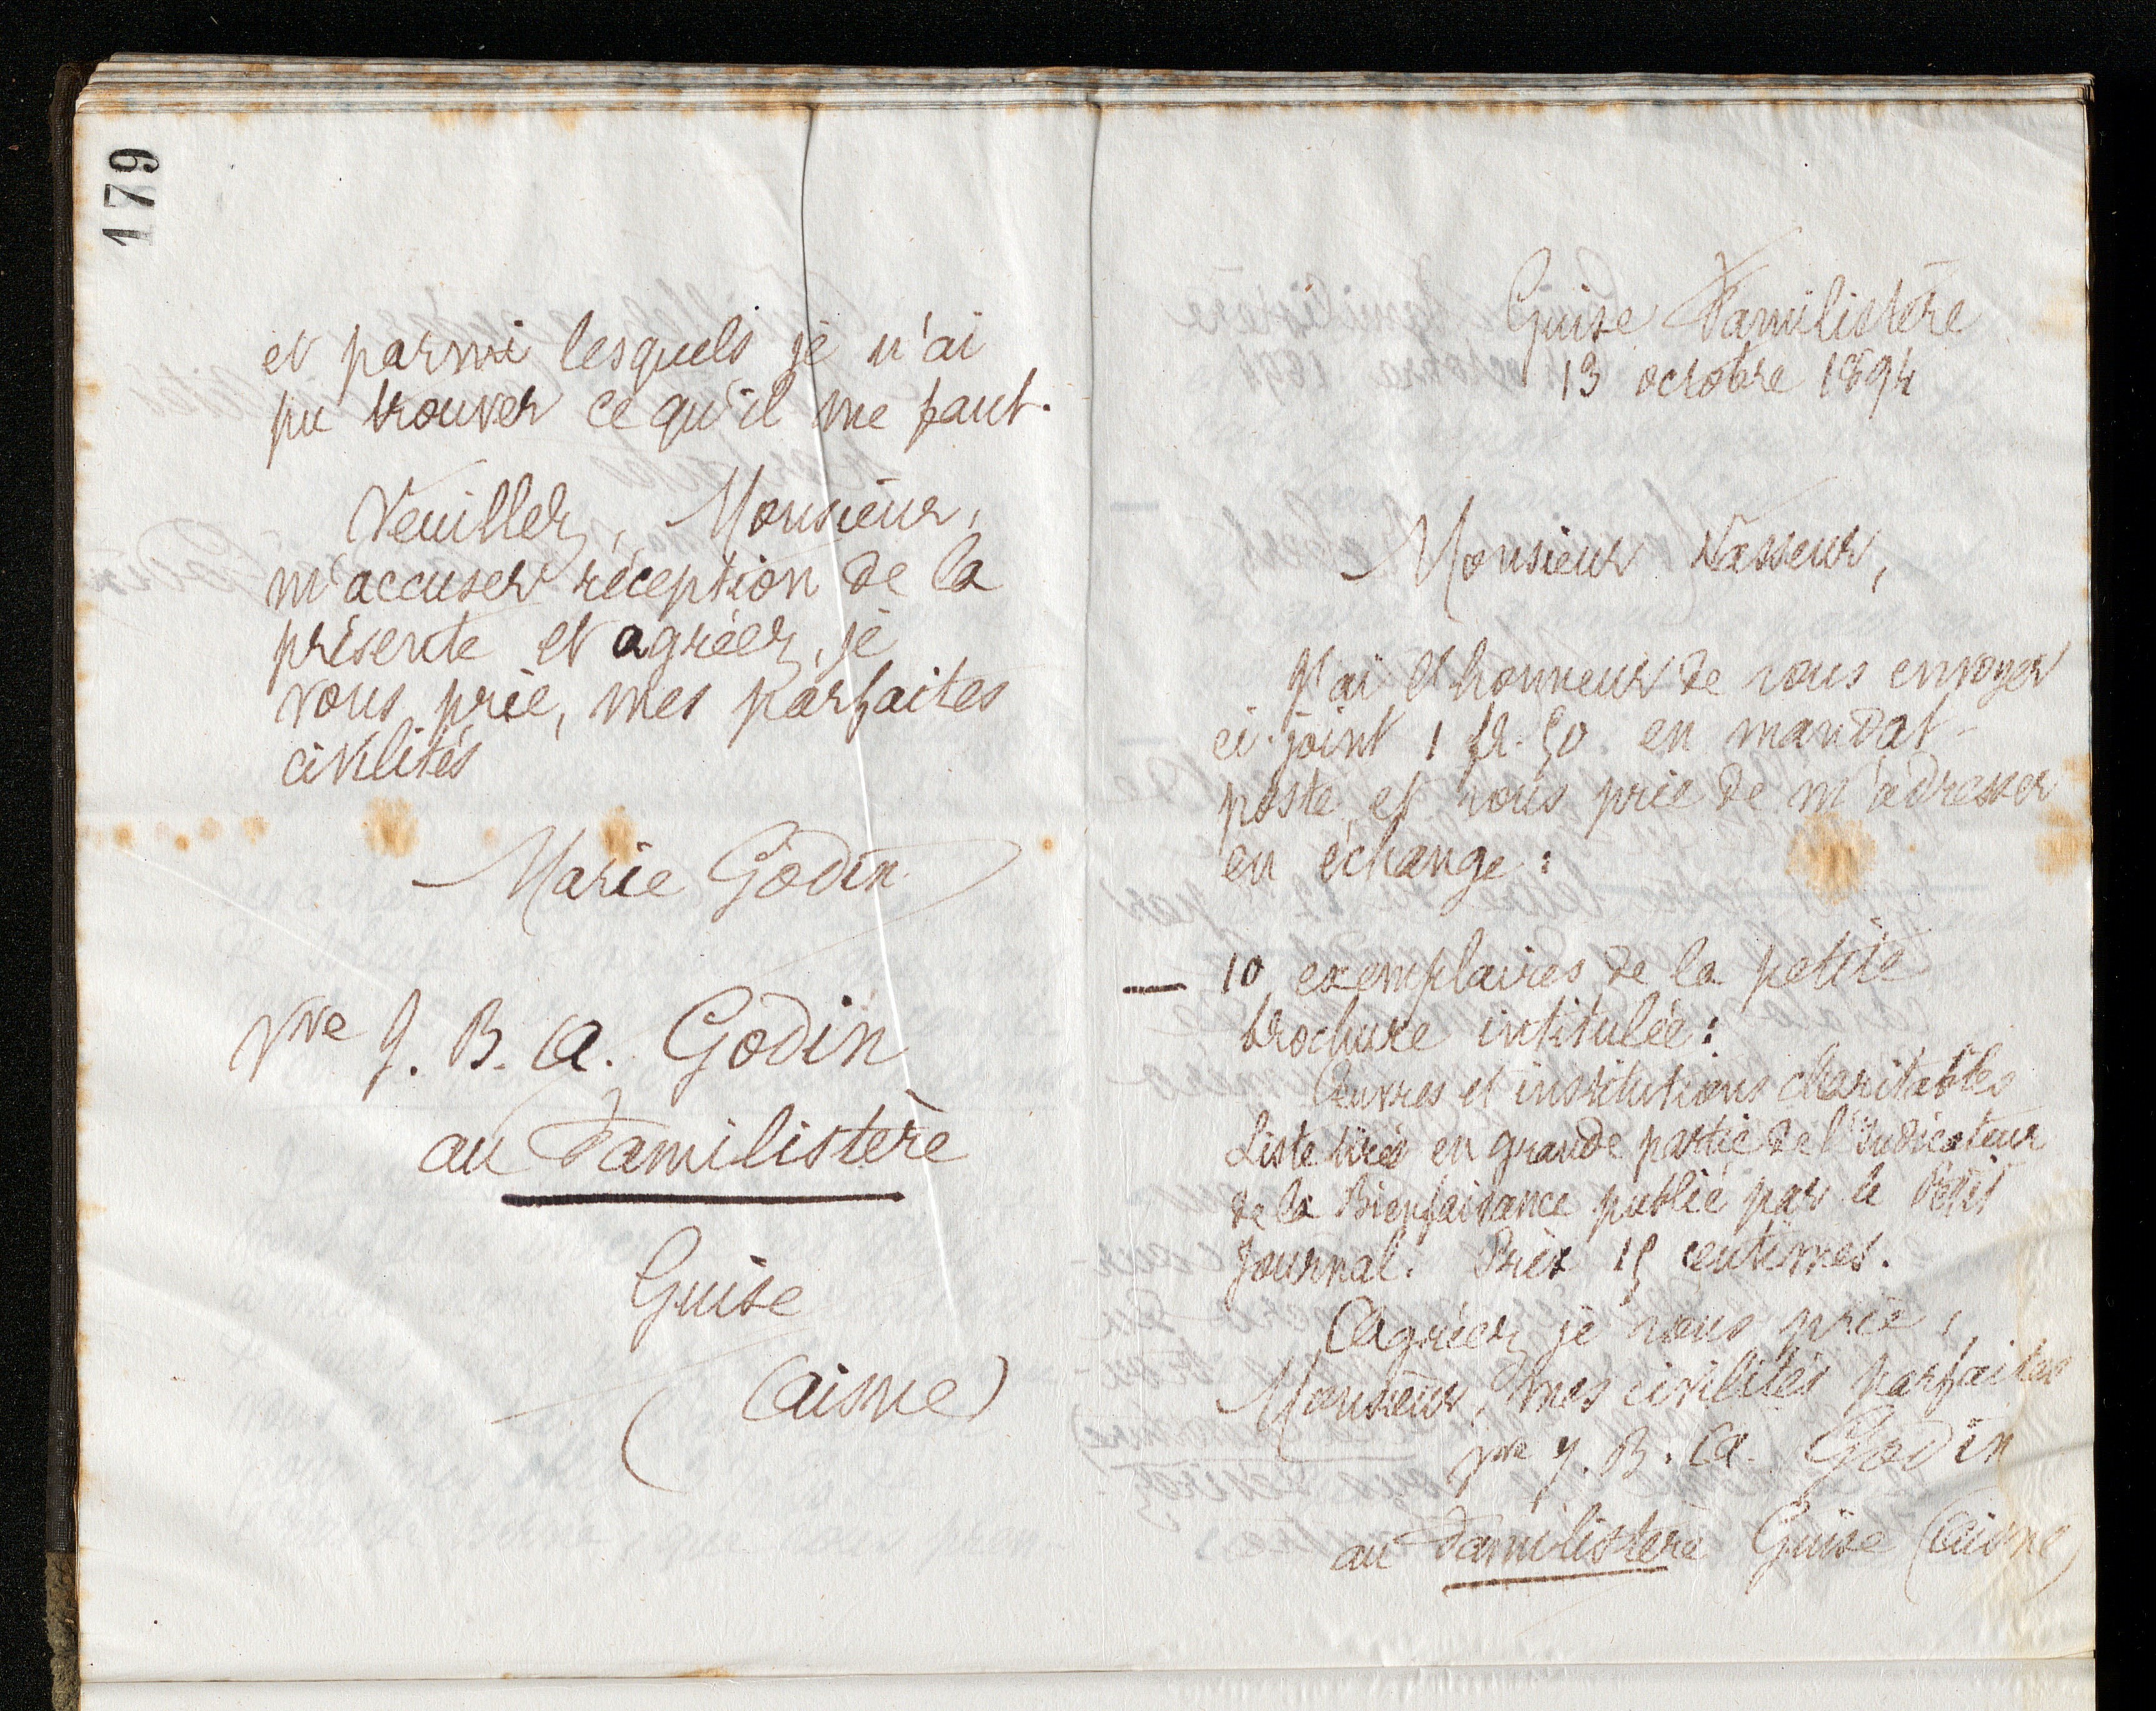 179
et parmi lesquels je n'ai
pu trouver ce qu'il me faut.
Veuillez, Monsieur,
m'accuser réception de la
présente et agréer, je
vous prie, mes parfaites
civilités
Marie Godin
Vve J. B. A. Godin
au Familistère
Guise
(Aisne)
Guise Familistère
13 octobre 1894
Monsieur Vasseur,
J'ai l'honneur de vous envoyer
ci-joint 1 fr. 50 en mandat-
poste et vous prie de m'adresser
en échange :
— 10 exemplaires de la petite
brochure intitulée :
Œuvres et institutions charitables
Liste tirée en grande partie de l'Indicateur
de la Bienfaisance publié par le Petit
Journal. Prix 15 centimes.
Agréez, je vous prie,
Monsieur, mes civilités parfaites
Vve J. B. A. Godin
au Familistère Guise (Aisne)